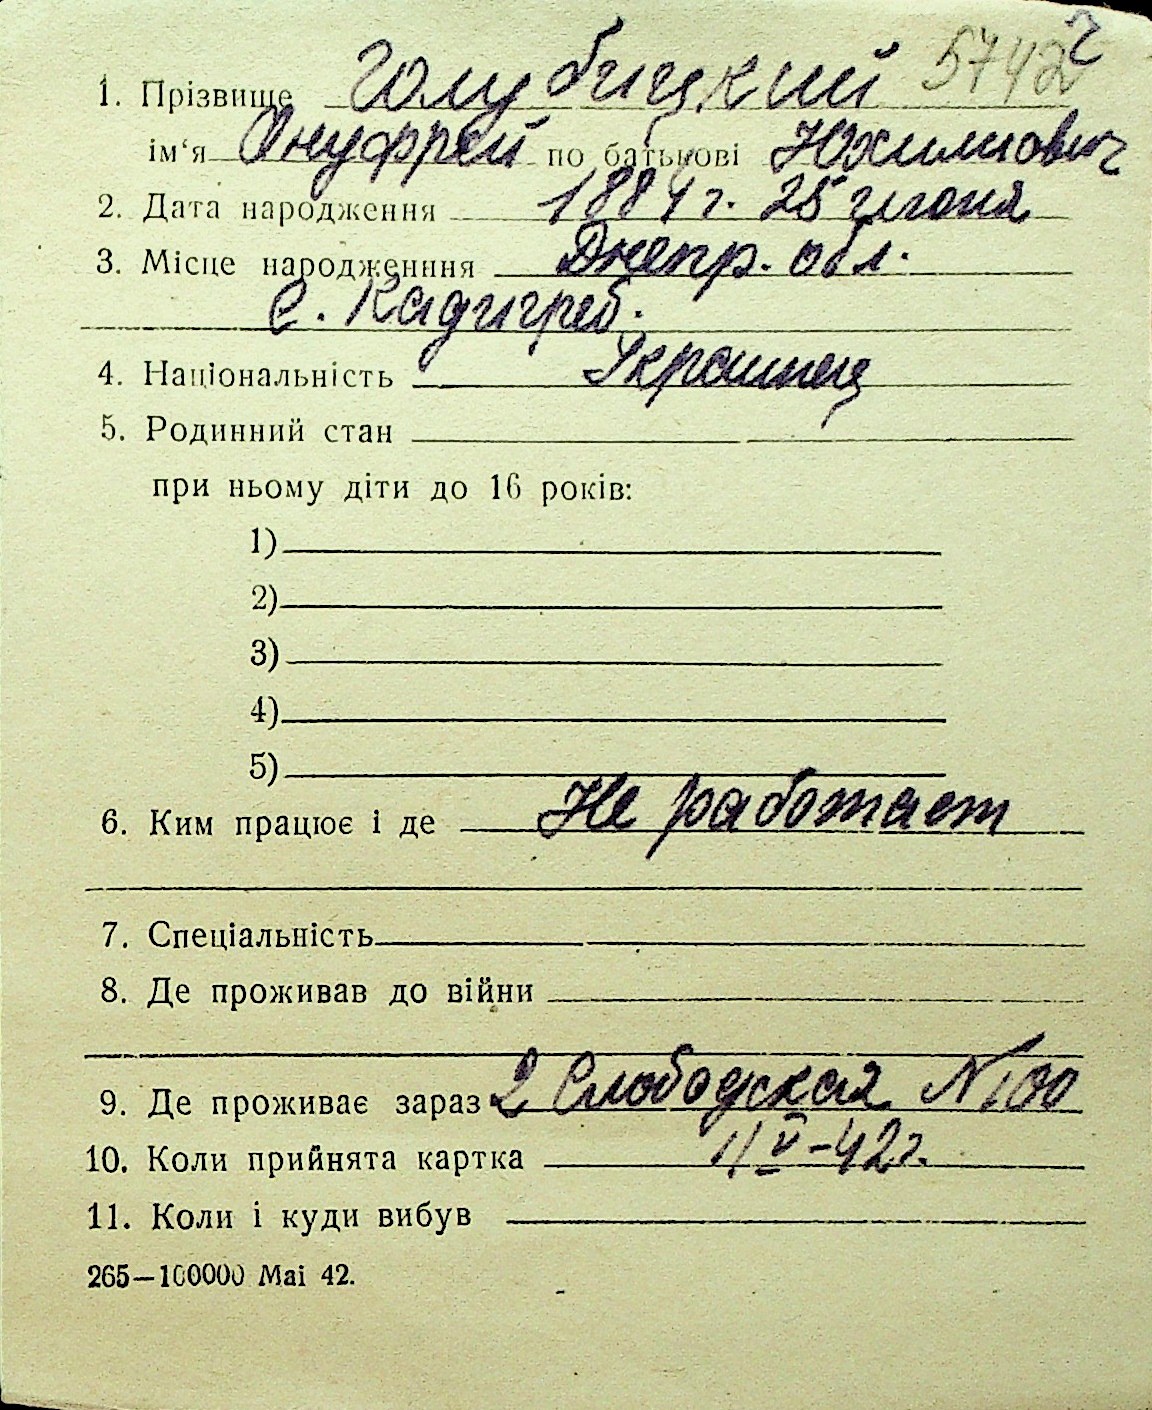 ч
1. Прізвище Голубицкий 5742
ім'я Онуфрей по батькові Юхимович
2. Дата народження 1884 г. 25 июня
3. Місце народженння Днепр. обл.
с. Кадигроб.
4. Національність Украинец
5. Родинний стан
при ньому діти до 16 років:
1)
2)
3)
4)
5)
6. Ким працює і де Не работает
7. Спеціальність
8. Де проживав до війни
9. Де проживає зараз 2 Слободская № 100
10. Коли прийнята картка 11/V-42 г.
11. Коли і куди вибув
265—100000 Mai 42.